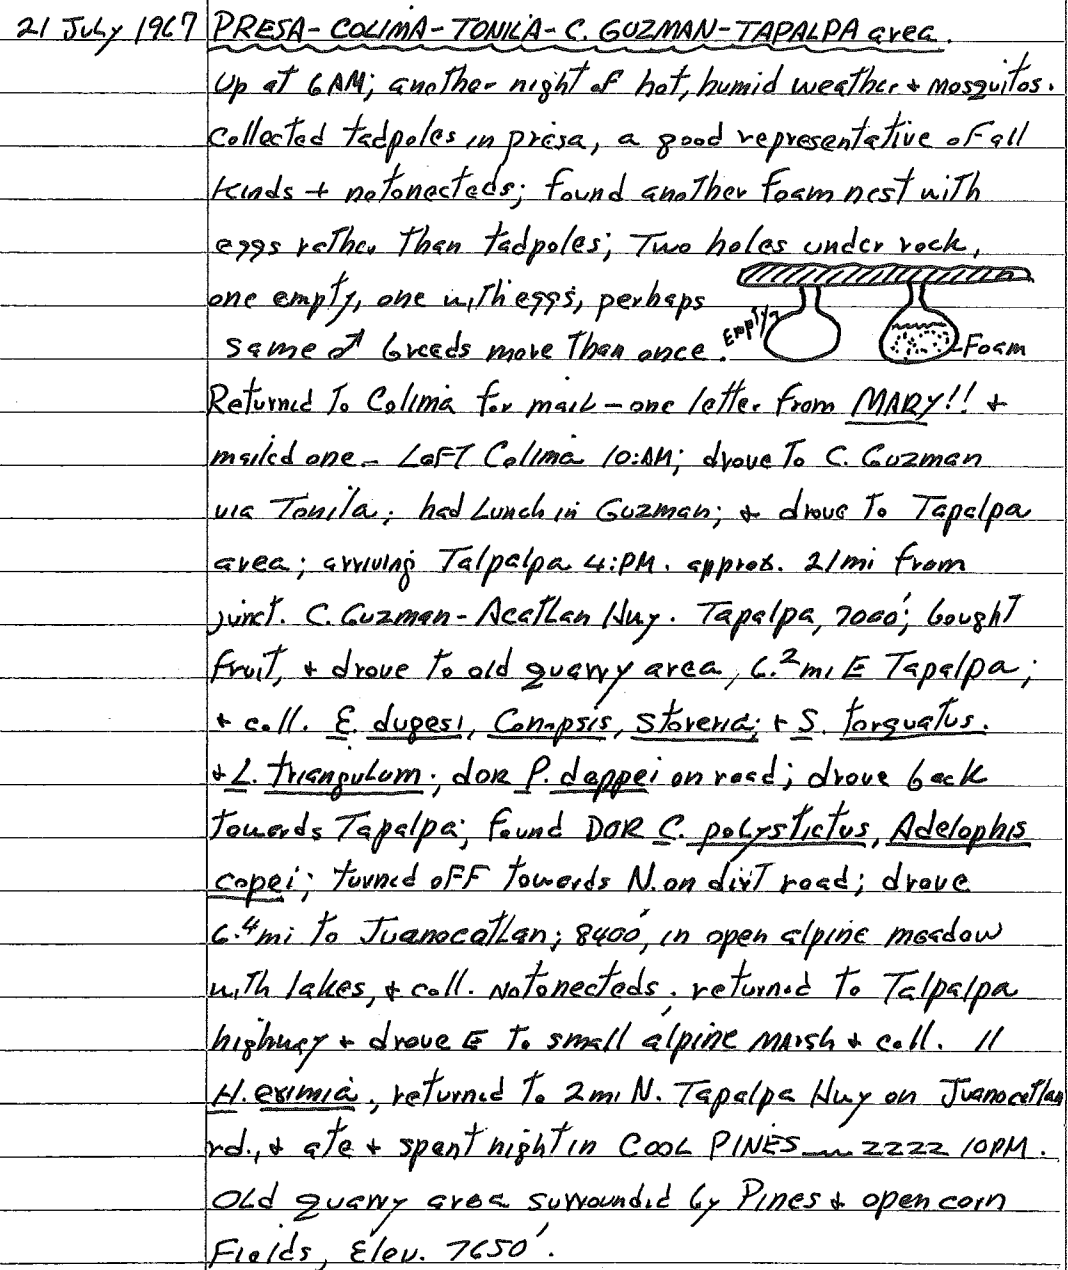 21 July 1967 PRESA-COLIMA-TONILA-C. GUZMAN-TAPALPA area.
Up at 6AM; another night of hot, humid weather + mosquitos.
Collected tadpoles in presa, a good representative of all
kinds + notonecteds; found another foam nest with
eggs rather than tadpoles; Two holes under rock,
one empty, one with eggs, perhaps
same ♂ breeds more than once.
Empty
Foam
Returned to Colima for mail - one letter from MARY!! +
mailed one - Left Colima 10:AM; drove to C. Guzman
via Tonila; had Lunch in Guzman; + drove to Tapalpa
area; arriving Talpalpa 4:PM. approx. 21mi from
junct. C. Guzman-Acatlan Hwy. Tapalpa, 7000'; bought
fruit, + drove to old quarry area, 6.2mi E Tapalpa;
+ coll. E. dugesi, Conopsis, Storeria; + S. torquatus.
+ L. triangulum; dor P. deppei on road; drove back
towards Tapalpa; found DOR C. polystictus, Adelophis
copei; turned off towards N. on dirt road; drove
6.4mi to Juanocatlan; 8400', in open alpine meadow
with lakes, + coll. Notonecteds. returned to Talpalpa
highway + drove E to small alpine marsh + coll. 11
H. eximia, returned to 2mi N. Tapalpa Hwy on Juanocatlan
rd., + ate + spent night in COOL PINES zzzz 10PM.
Old quarry area surrounded by Pines + open corn
Fields, Elev. 7650'.